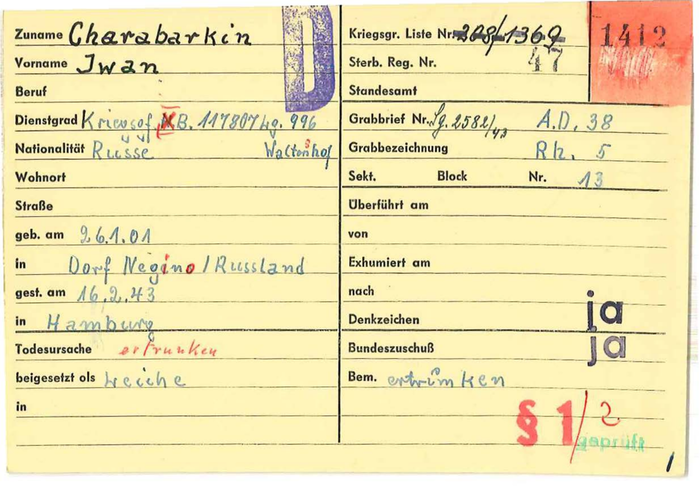 Zuname Charabarkin
Vorname Iwan
Beruf
Dienstgrad Kriegsgf. XB. 117807 Lg. 996
Nationalität Russe Waltershof
Wohnort
Straße
geb. am 26.1.01
in Dorf Negino / Russland
gest. am 16.2.43
in Hamburg
Todesursache ertrunken
beigesetzt als Leiche
in
D
Kriegsgr. Liste Nr. 208/1369
1412
Sterb. Reg. Nr. 47
Standesamt
Grabbrief Nr. Lg. 2582/43 A.D. 38
Grabbezeichnung Rh. 5
Sekt. Block Nr. 13
Überführt am
von
Exhumiert am
nach
Denkzeichen ja
Bundeszuschuß ja
Bem. ertrunken
§ 1/2